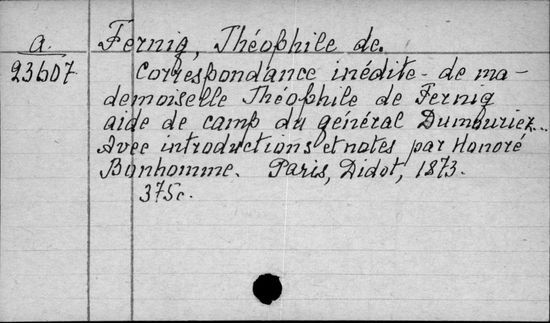 a. Fernig, Théophile de.
23607 Correspondance inédite de ma-
demoiselle Théophile de Fernig
aide de camp du général Dumouriez...
Avec introductions et notes par Honoré
Bonhomme. Paris, Didot, 1873.
375c.